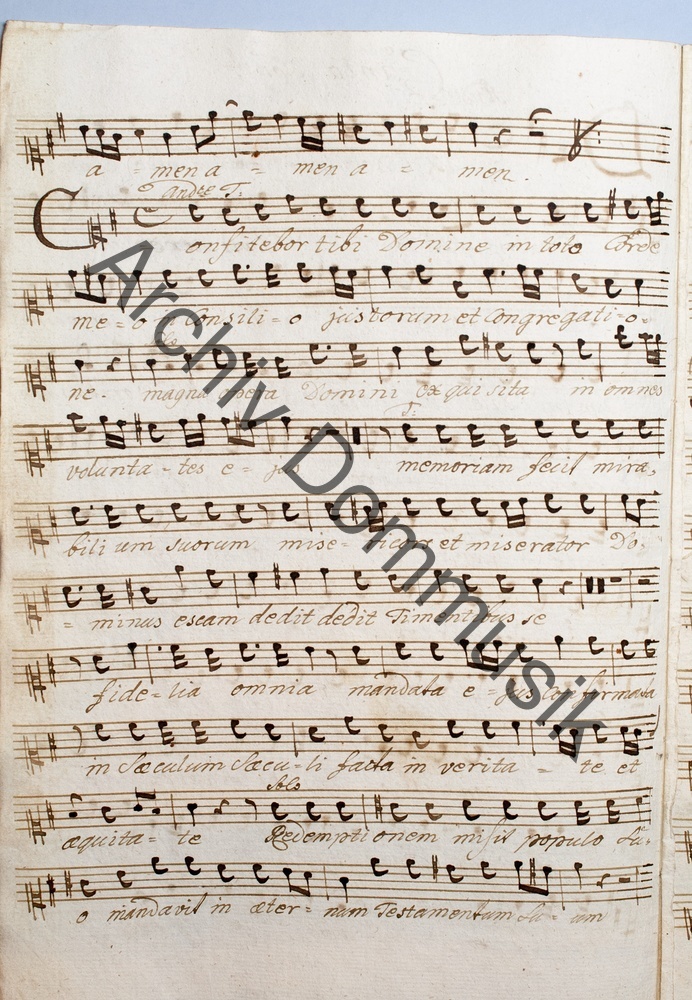 a = men a = men a = men.
Andte T:
Confitebor tibi Domine in toto Corde
me = o in Consili = o justorum et Congregati = o =
ne. magna opera Domini exquisita in omnes
T:
volunta = tes e = jus memoriam fecit mira,
bilium suorum mise = ricors et miserator Do,
= minus escam dedit dedit Timentibus se
fide = lia omnia mandata e = jus confirmata
in Sæculum Sæcu = li facta in verita = te et
solo
æquita = te Redemptionem misit populo su,
o mandavit in æter = num Testamentum su = um
Archiv Dommusik